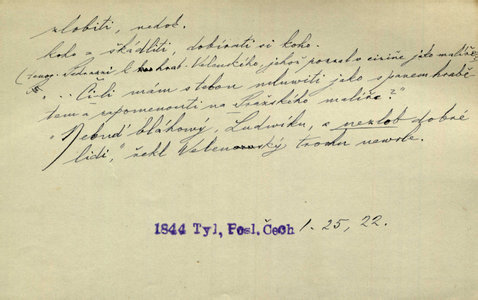 zlobiti, nedok.
koho = škádliti, dobírati si koho.
( hrab. Valenského, jehož poznalo cizině jako malíře
"... Či-li mám s tebou mluwiti jako s panem hrabě-
tem a zapomenouti na Pražského malíře?"
"Nebuď bláhowý, Ludwíku, a nezlob dobré
lidi," řekl Walenský trochu newrle.
1844 Tyl, Posl. Čech 1. 25, 22.